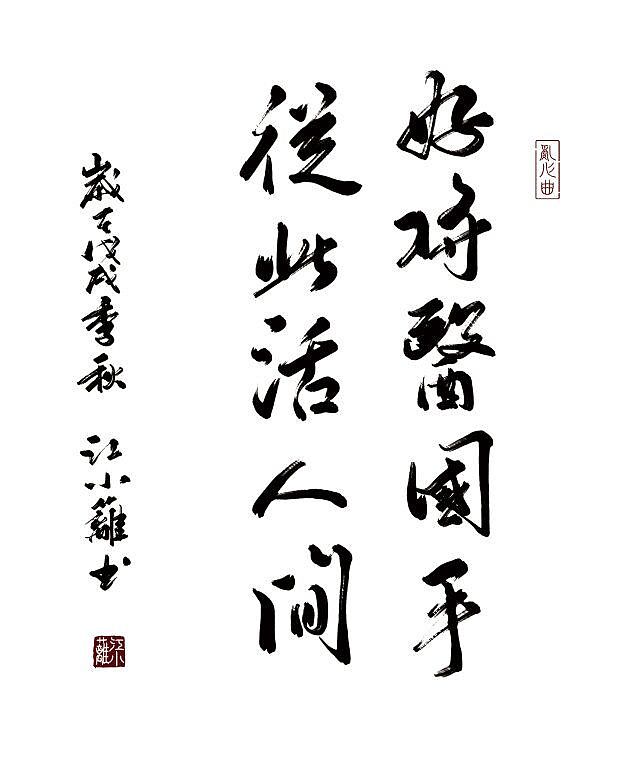 亂心曲
好將醫國手
從此活人間
歲在戊戌季秋 江小籬书
江小籬